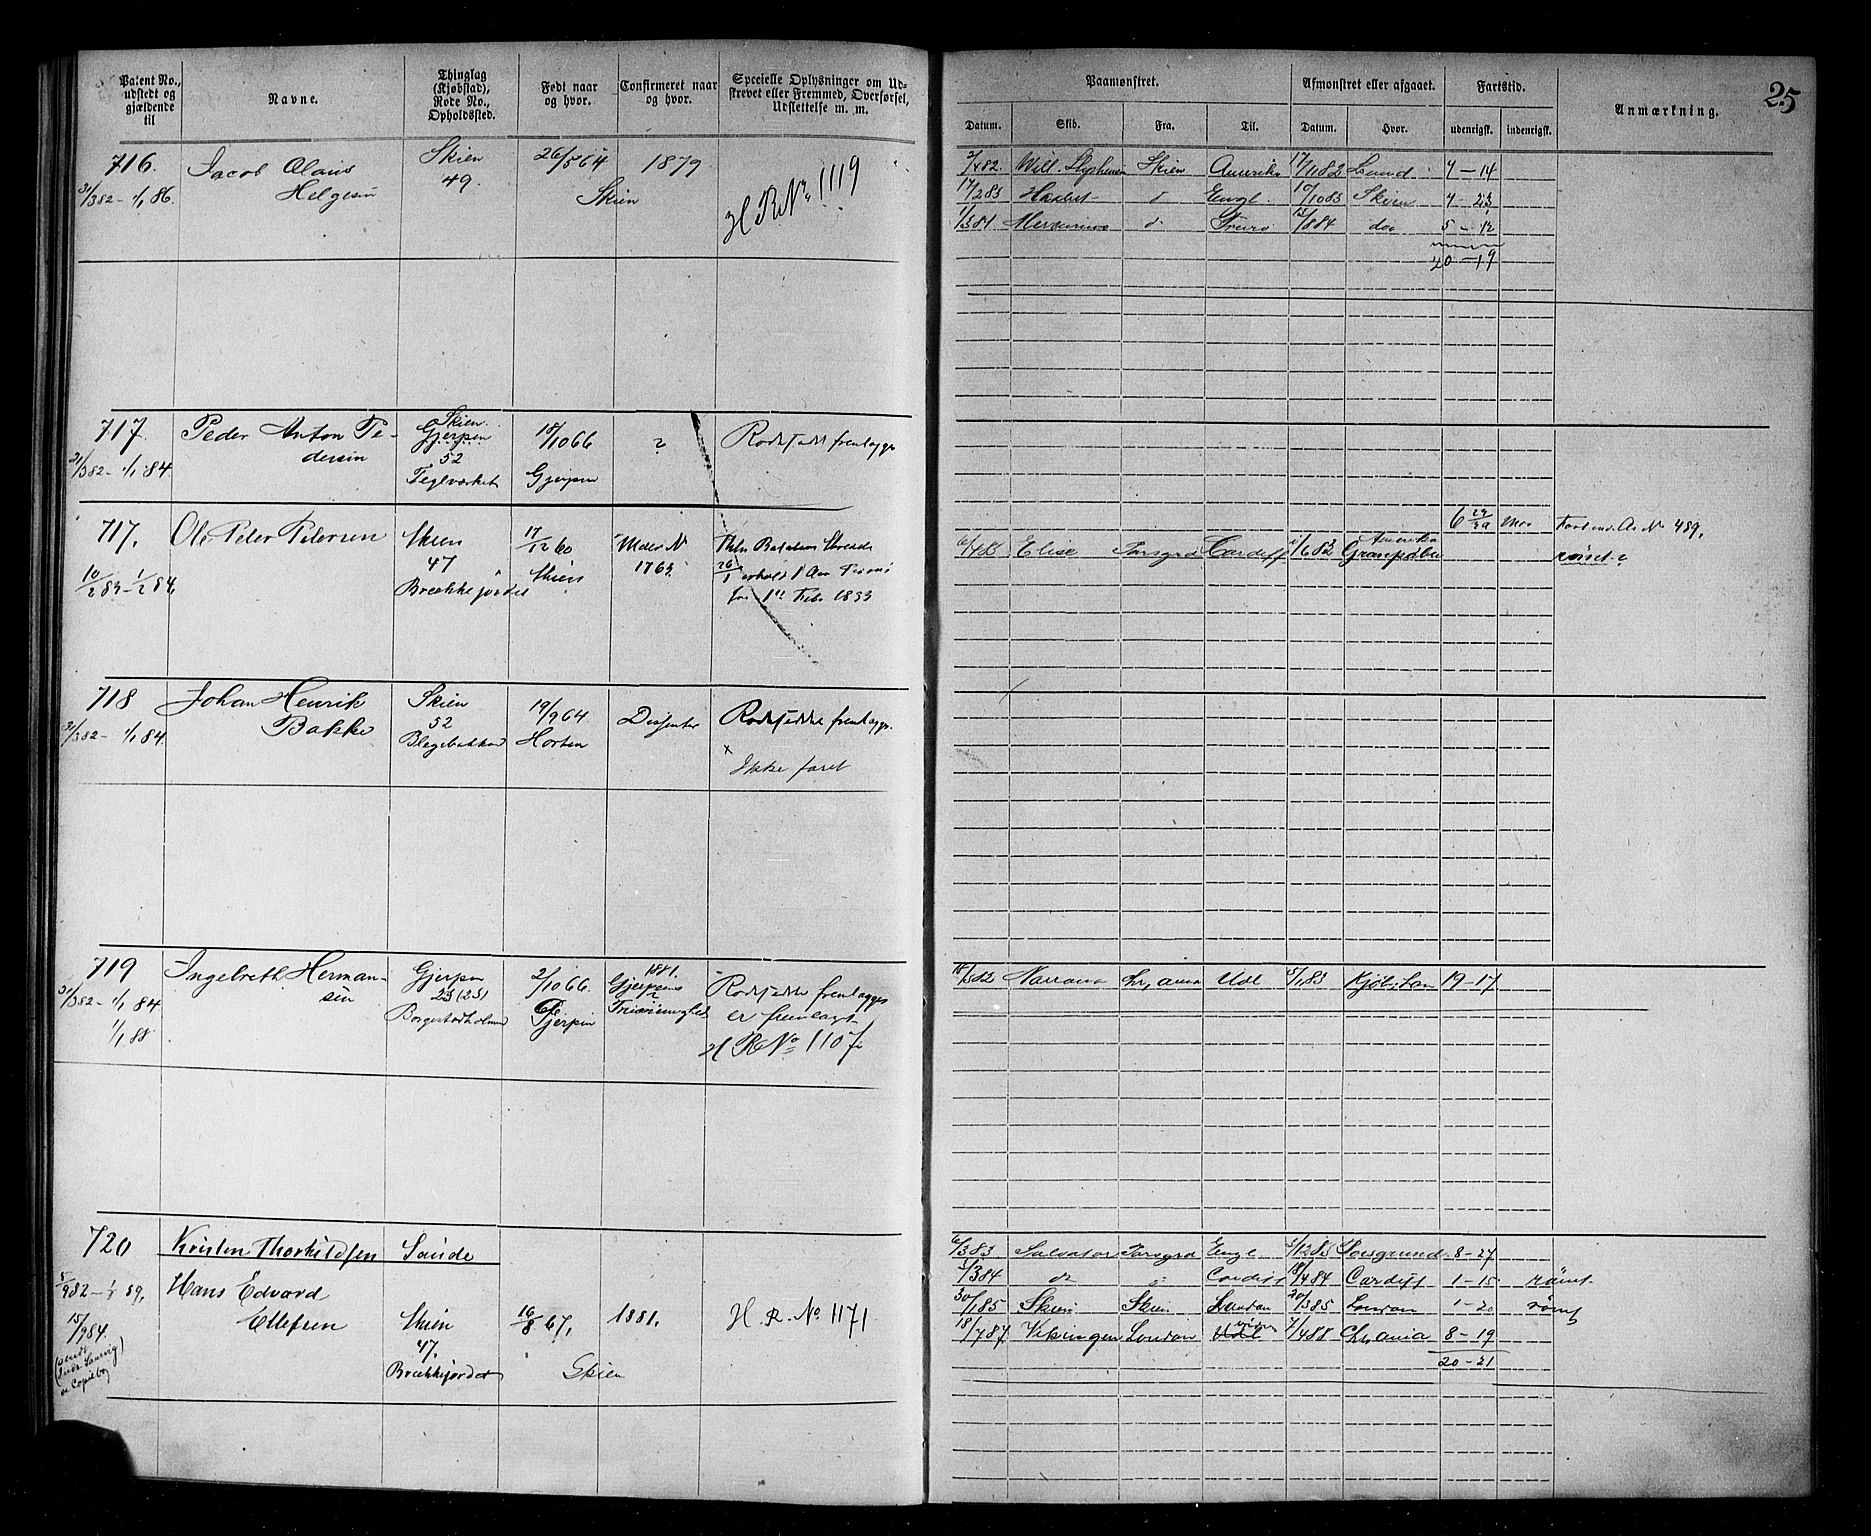 Patent No., udstedt og gjældende til
Navne.
Thinglag (Kjøbstad), Rode No., Opholdssted.
Født naar og hvor.
Confirmeret naar og hvor.
Specielle Oplysninger om Udskrevet eller Fremmed, Overførsel, Udslettelse m. m.
Paamønstret.
Afmønstret eller afgaaet.
Fartstid.
Anmærkning.
25
Datum.
Skib.
Fra.
Til.
Datum.
Hvor.
udenrigsk.
indenrigsk.
716.
31/3 82 - 1/1 86.
Jacob Olaus
Helgesen
Skien
49.
26/5 64
1879
Skien
H R No 1119
Will. Skien Amerika 17/11 82 Lund 7-14
17/2 83 Engl. 10/10 83 Skien 4-23
Mercurius Truro do 5-12
20-19
717.
31/3 82 - 1/1 84.
Peder Anton Pe-
dersen
Skien
Gjerpen
52
Teglværket
18/10 66
Gjerpen
?
Rodeseddel fremlægges
717.
10/2 83 - 1/2 84
Ole Peter Petersen
Skien
47
Brækkejordet
17/12 60
Skien
Under N
1763.
fra 1ste Febr 1883
6 29/30 Mdr
No 489,
Elise Porsgrd Cardiff Amerika
rømt
718
31/3 82 - 1/1 84.
Johan Henrik
Bakke
Skien
52
Blegebakken
19/9 64
Horten
Dissenter
Rodeseddel fremlægges.
x
Ikke faret
719
31/3 82 - 1/1 84
1/1 88
Ingebreth Herman-
sen
Gjerpen
23 (25)
Borgestadholmen
2/10 66
Gjerpen
1881.
Gjerpens
Rodeseddel fremlægges
er fremlagt
H R No 1107
18/5 82 Chr,ania Udl 5/1 83 19-17
720
5/9 82 - 1/1 89.
15/9 84.
Kristen Thorkildsen
Saude
Hans Edvard
Ellefsen
Skien
47.
Brækkejordet
16/8 67,
1881,
Skien
H. R. No 1171
6/3 83 Salvator Porsgrd Engl 5/12 83 Porsgrund 8-27
5/3 84 do Cardiff 18/4 84 Cardiff 1-15 rømt
30/1 85 Skien Skien London 20/3 85 London 1-20 rømt
18/7 87 Vikingen London Udl 7/4 88 Chr,ania 8-19
20-21